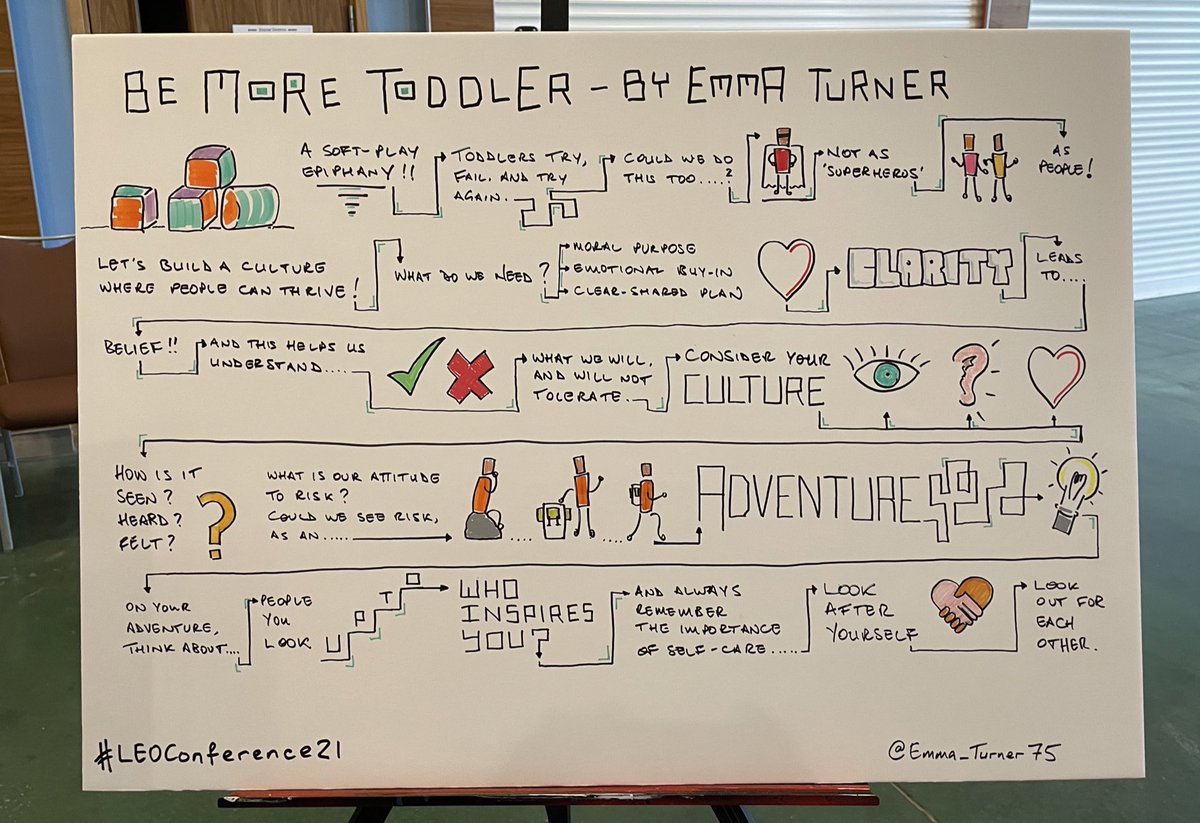 BE MORE TODDLER – BY EMMA TURNER
A SOFT-PLAY
EPIPHANY!!
TODDLERS TRY,
FAIL AND TRY
AGAIN.
COULD WE DO
THIS TOO....?
NOT AS
'SUPERHEROS'
AS
PEOPLE!
LET'S BUILD A CULTURE
WHERE PEOPLE CAN THRIVE!
WHAT DO WE NEED?
MORAL PURPOSE
EMOTIONAL BUY-IN
CLEAR-SHARED PLAN
CLARITY
LEADS
TO....
BELIEF!!
AND THIS HELPS US
UNDERSTAND....
WHAT WE WILL,
AND WILL NOT
TOLERATE.
CONSIDER YOUR
CULTURE
HOW IS IT
SEEN?
HEARD?
FELT?
WHAT IS OUR ATTITUDE
TO RISK?
COULD WE SEE RISK,
AS AN.....
ADVENTURE
ON YOUR
ADVENTURE,
THINK ABOUT....
PEOPLE
YOU
LOOK
UP TO
WHO
INSPIRES
YOU?
AND ALWAYS
REMEMBER
THE IMPORTANCE
OF SELF-CARE.....
LOOK
AFTER
YOURSELF
LOOK
OUT FOR
EACH
OTHER.
#LEOConference21
@Emma_Turner75